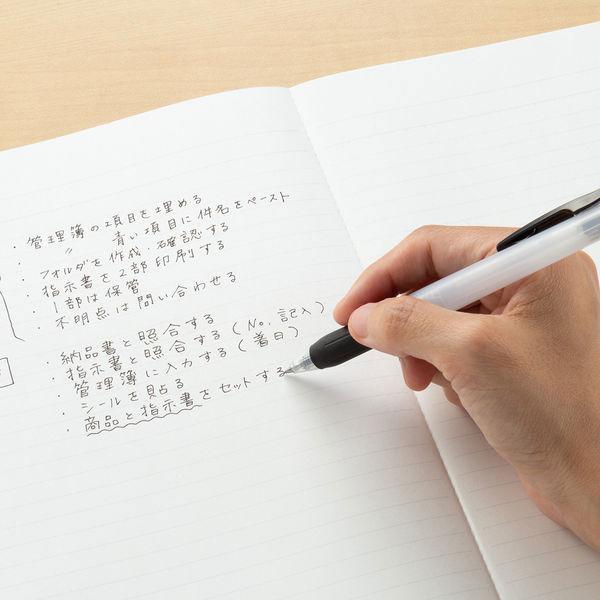 ・管理簿の項目を埋める
・ 〃 青い項目に件名をペースト
・フォルダを作成・確認する
・指示書を2部印刷する
・1部は保管
・不明点は問い合わせる
・納品書と照合する
・指示書と照合する(No. 記入)
・管理簿に入力する(着日)
・シールを貼る
・商品と指示書をセットする